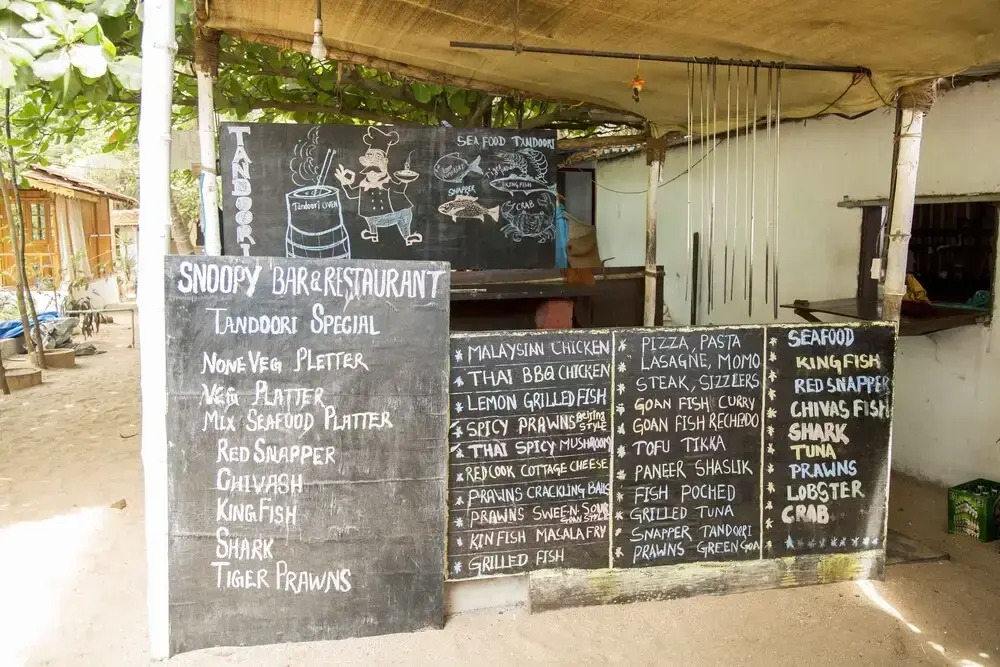 TANDOORI
Tandoori OVEN
SEA FOOD TANDOORI
SNAPPER
KINGFISH
CRAB
SNOOPY BAR & RESTAURANT
TANDOORI SPECIAL
NONE VEG PLETTER
VEG PLATTER
MIX SEAFOOD PLATTER
RED SNAPPER
CHIVASH
KING FISH
SHARK
TIGER PRAWNS
* MALAYSIAN CHICKEN
* THAI BBQ CHICKEN
* LEMON GRILLED FISH
* SPICY PRAWNS Beijing STYLE
* THAI SPICY MUSHROOM
* RED COOK COTTAGE CHEESE
* PRAWNS CRACKLING BALLS
* PRAWNS SWEEN SOUR GOAN STYLE
* KIN FISH MASALA FRY
* GRILLED FISH
* PIZZA, PASTA
LASAGNE, MOMO
* STEAK, SIZZLERS
* GOAN FISH CURRY
* GOAN FISH RECHEADO
* TOFU TIKKA
* PANEER SHASLIK
* FISH POCHED
* GRILLED TUNA
* SNAPPER TANDOORI
* PRAWNS GREEN GOA
* SEAFOOD
* KINGFISH
* RED SNAPPER
* CHIVAS FISH
* SHARK
* TUNA
* PRAWNS
* LOBSTER
* CRAB